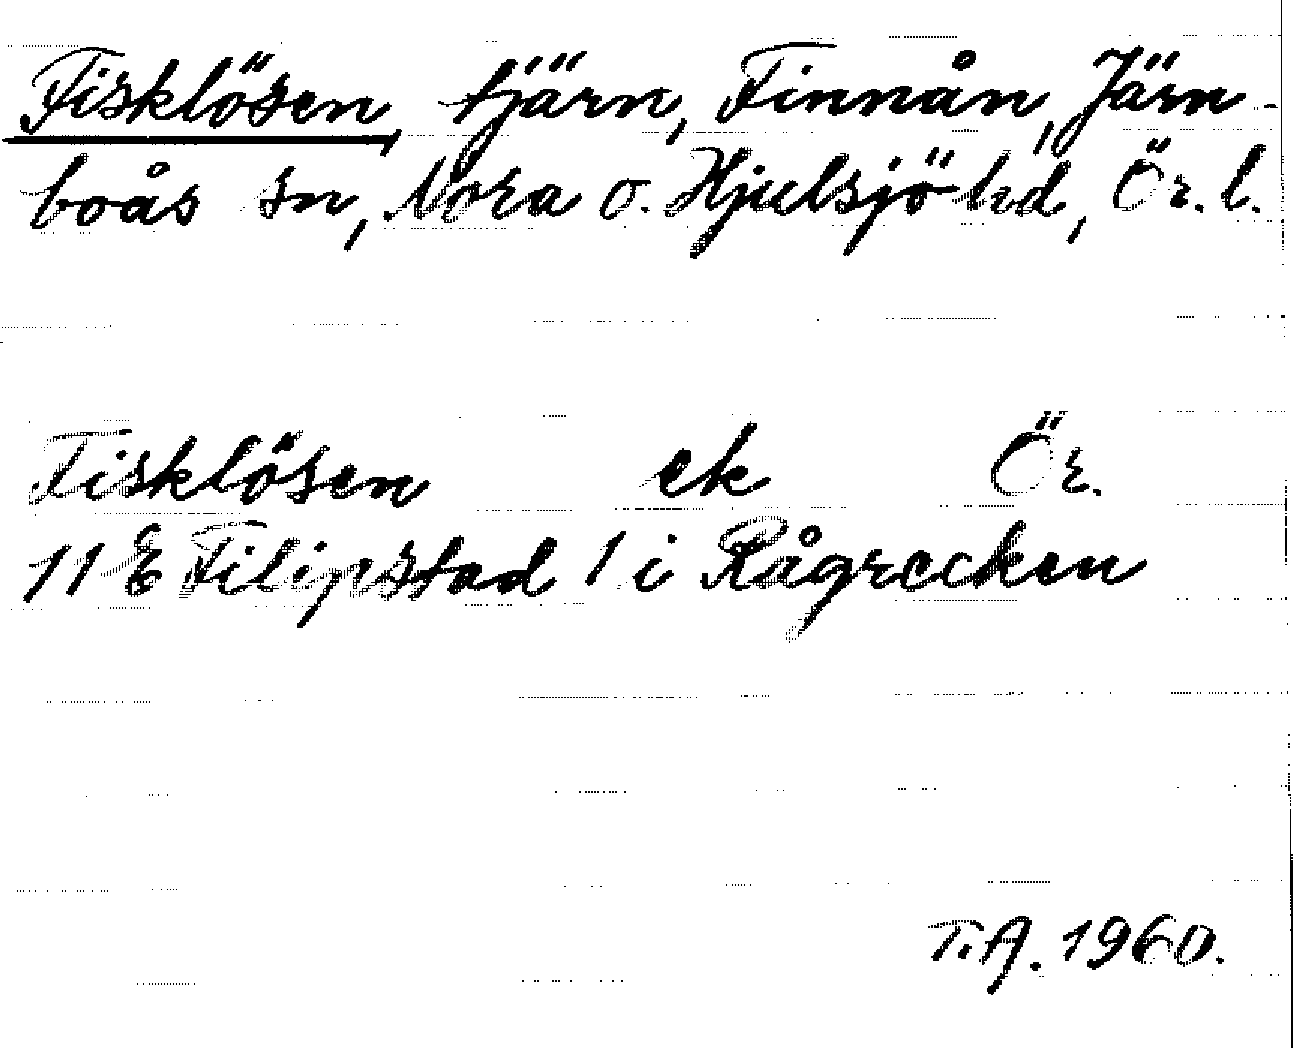 Fisklösen, tjärn, Finnån, Järn-
boås sn, Nora o. Hjulsjö hd, Ör. l.
Fisklösen ek Ör.
11 E Filipstad 1 i Rågrecken
T.A. 1960.